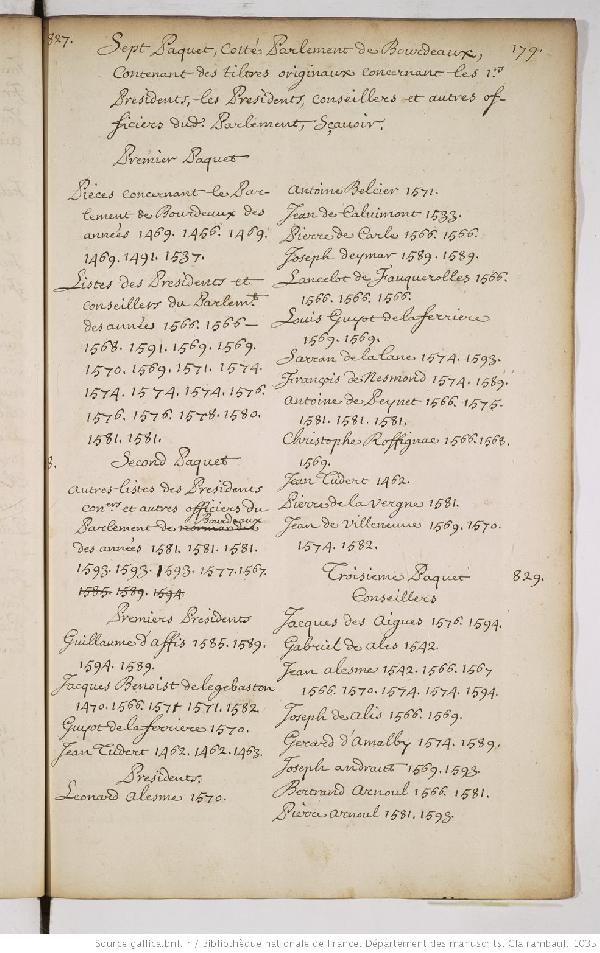 827.
179.
Sept Paquet, Cotté Parlement de Bourdeaux,
Contenant des tiltres originaux concernant les 1.rs
Presidents, les Presidents, conseillers et autres of-
ficiers dud. Parlement, Sçauoir.
Premier Paquet
Piéces concernant le Par-
lement de Bourdeaux des
années 1469. 1456. 1469.
1469. 1491. 1537.
Listes des Presidents et
conseillers du Parlem.t
des années 1566. 1566-
1568. 1591. 1569. 1569.
1570. 1569. 1571. 1574.
1574. 1574. 1574. 1576.
1576. 1576. 1578. 1580.
1581. 1581.
8.
Second Paquet
autres listes des Presidents
con.ers et autres officiers du
Parlement de normandie Bourdeaux
des années 1581. 1581. 1581.
1593. 1593. 1593. 1577. 1567.
1585. 1589. 1594
Premiers Presidents
Guillaume d'affis 1585. 1589.
1594. 1589.
Jacques Benoist de legebaston
1470. 1566. 1571 1571. 1582.
Guyot de la ferriere 1570.
Jean Tudert 1462. 1462. 1463.
Presidents.
Leonard alesme 1570.
Antoine Belcier 1571.
Jean de Caluimont 1533.
Pierre de Carle 1566. 1566.
Joseph deymar 1589. 1589.
Lancelot de Fauquerolles 1566.
1566. 1566. 1566.
Louis Guyot de la ferriere
1569. 1569.
Sarran de la lane 1574. 1593.
François de Nesmond 1574. 1589.
Antoine de Peynet 1566. 1575.
1581. 1581. 1581.
Christophe Roffignac 1566. 1568.
1569.
Jean Tudert 1462.
Pierre de la vergne 1581.
Jean de villeneuue 1569. 1570.
1574. 1582.
Troisieme Paquet
829.
Conseillers
Jacques des Aigues 1576. 1594.
Gabriel de ales 1542.
Jean alesme 1542. 1566. 1567
1566. 1570. 1574. 1574. 1594.
Joseph de alis 1566. 1569.
Gerard d'Amalby 1574. 1589.
Joseph andraut 1569. 1593.
Bertrand Arnoul 1566. 1581.
Pierre Arnoul 1581. 1593.
Source gallica.bnf.fr / Bibliothèque nationale de France. Département des manuscrits. Clairambault 1035